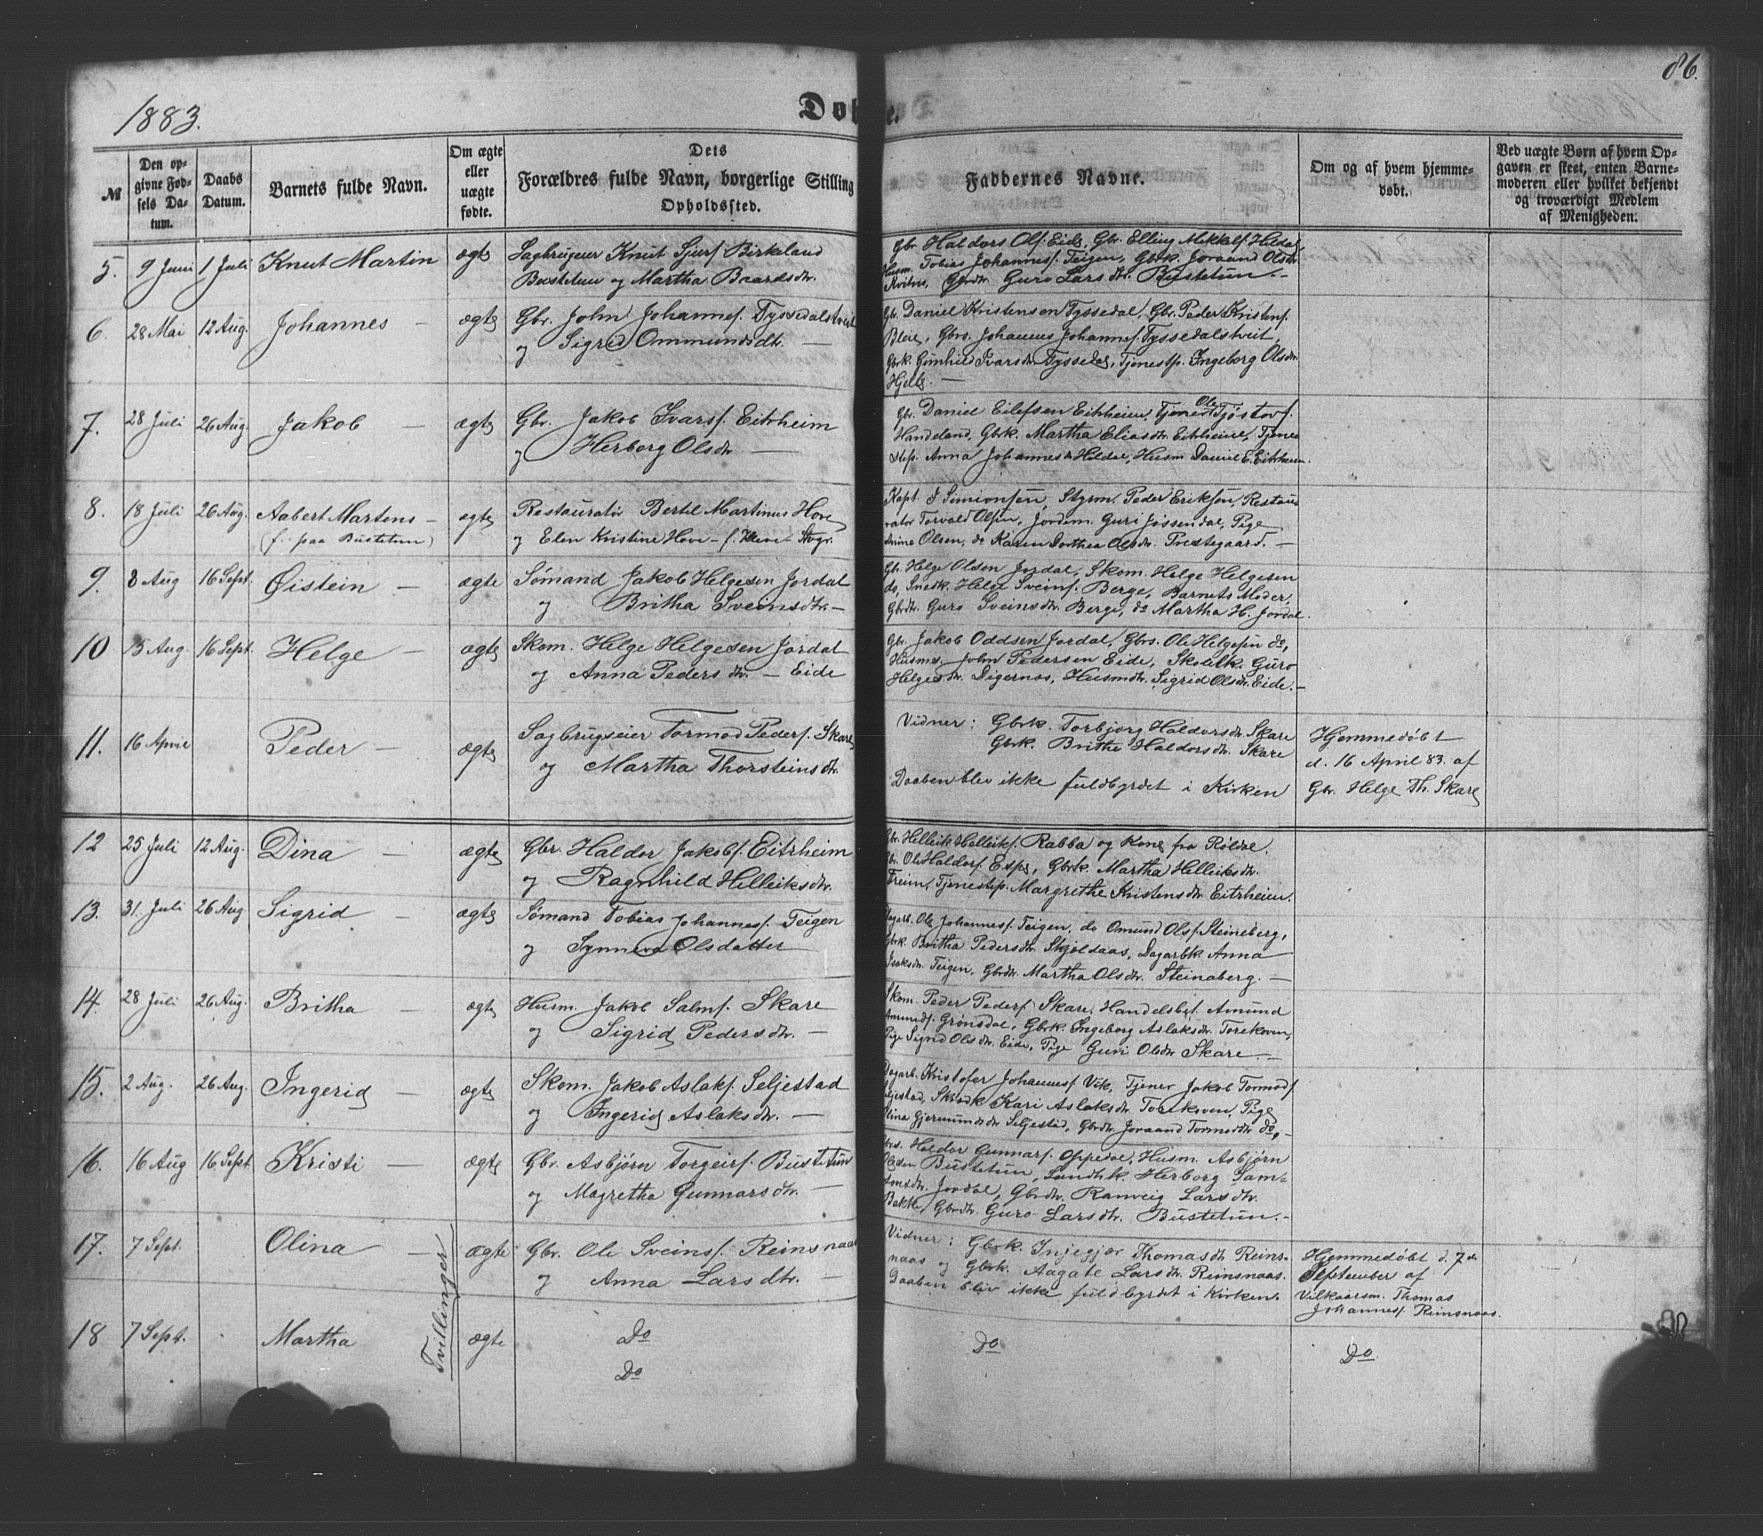 1883.
Dø
e.
86.
№
Den opgivne Fødsels Datum.
Daabs Datum.
Barnets fulde Navn.
Om ægte eller uægte fødte.
Dets Forældres fulde Navn, borgerlige Stilling Opholdssted.
Faddernes Navne.
Om og af hvem hjemmedøbt.
Ved uægte Børn af hvem Opgaven er skeet, enten Barnemoderen eller hvilket bekjendt og troværdigt Medlem af Menigheden.
5. 9 Juni 1 Juli Knut Martin ægte Sagbrugeier Knut Sjurs. Birkeland
Bustetun og Martha Baardsdtr.
Gbr. Haldors Ols. Eide, Gbr. Elling Mikkels. Hildal,
Husm. Tobias Johanness. Teigen, Gbrk. Joraand Olsdtr
Kvitno, Gbrdtr Guro Larsdtr. Bustetun. —
6. 28 Mai 12 Aug. Johannes — ægte Gbr. John Johannes. Tyssedalstveit
og Sigrid Ommundsdtr. —
Gbr. Daniel Kristensen Tyssedal, Gbr. Peder Kristens.
Bleie, Gbrs. Johannes Johannes. Tyssedalstveit,
Gbrk. Gunhild Ivarsdtr Tyssedal, Tjenestp. Ingeborg Olsdtr
Hjelle. —
7. 28 Juli 26 Aug. Jakob — ægte Gbr. Jakob Ivars. Eitrheim
og Herborg Olsdtr —
Gbr. Daniel Eilefsen Eitrheim, Tjener Ole Tjøstovs.
Handeland, Gbrk. Martha Eliasdtr. Eitrheim, Tjene
step. Anna Johannesdtr Hildal, Husm Daniel E. Eitrheim.
8. 18 Juli 26 Aug. Aabert Martens —
(f. paa Bustetun)
ægte Restauratør Bertel Martinus Hove
og Elen Kristine Hove —
Kapt. Simionsen, Styrm. Peder Eriksen, Restau
rator Torvald Olsen, Jordm. Guri Jøssendal, Pige
Anine Olsen, do Karen Dorthea Olsdtr. Prestegaard. —
9. 8 Aug 16 Sept. Øistein — ægte Sømand Jakob Helgesen Jordal
og Britha Sveinsdtr —
Gbr. Helge Olsen Jordal, Skom. Helge Helgesen
do, Snedk. Helge Sveins. Berge, Barnets Moder,
Gbrdtr. Guro Sveinsdtr. Berge, do Martha H. Jordal.
10 15 Aug. 16 Sept. Helge — ægte Skom. Helge Helgesen Jordal
og Anna Pedersdtr. — Eide
Gbr. Jakob Oddsen Jordal, Gbrs. Ole Helgesen do,
Husms. John Pedersen Eide, Skolelk. Guro
Helgesdtr. Digernes, Husmdtr. Sigrid Olsdtr. Eide. —
11. 16 April Peder — ægte Sagbrugseier Tormod Peders. Skare
og Martha Thorsteinsdtr.
Vidner: Gbrk. Torbjørg Haldorsdtr. Skare
Gbrk. Britha Haldorsdtr. Skare
Daaben blev ikke fuldbyrdet i Kirken
Hjemmedøbt
d. 16 April 83. af
Gbr. Helge Th. Skare
12 25 Juli 12 Aug. Dina — ægte Gbr. Haldor Jakobs. Eitrheim
og Ragnhild Helleiksdtr.
Gbr. Helleik Helleiks. Rabba og Kone fra Røldal.
Gbr. Ole Haldors. Espe, Gbrk. Martha Helleiksdtr.
Freim, Tjenestep. Margrethe Kristensdtr Eitrheim.
13. 31 Juli 26 Aug. Sigrid — ægte Sømand Tobias Johannes. Teigen
og Synneva Olsdatter
Dagarb. Ole Johannes. Teigen, do Omund Ols. Steineberg,
Gbrk. Britha Pedersdtr. Skjoldaas, Dagarbk Anna
Isaksdtr. Teigen, Gbrdtr. Martha Olsdtr. Steinaberg. —
14. 28 Juli 26 Aug. Britha — ægte Husm. Jakob Salms. Skare
og Sigrid Pedersdtr. —
Skom. Peder Peders. Skare, Handelsbet. Amund
Amunds. Grønsdal, Gbrk. Ingeborg Aslaksdtr. Torekoven,
Pige Sigrid Olsdtr. Eide, Pige Guri Olsdtr Skare. —
15. 2 Aug. 26 Aug. Ingerid — ægte Skom. Jakob Aslaks. Seljestad
og Ingerid Aslaksdtr. —
Dagarb. Kristofer Johannes. Vik, Tjener Jakob Tormods.
Seljestad, Kari Aslaksdtr. Torekoven, Pige
Gjermundsdtr Seljestad, Gbrdtr. Joraand Tormodsdtr do, —
16. 16 Aug 16 Sept. Kristi — ægte Gbr. Asbjørn Torgeirs. Bustetun
og Magretha Gunnarsdtr. —
Gbrs. Haldor Gunnars. Oppedal, Husm. Asbjørn
Bustetun, Landhk. Herborg Sam-
sonsdtr. Jordal, Gbrdtr. Ranveig Larsdtr.
Bakke, Gbrdtr. Guro Larsdtr. Bustetun. —
17. 7 Sept. Olina — ægte Gbr. Ole Sveins. Reinsnaas
og Anna Larsdtr. —
Vidner: Gbrk. Injegjær Thomasdtr Reins-
naas og Gbrk. Aagate Larsdtr. Reinsnaas.
Daaben blev ikke fuldbyrdet i Kirken.
Hjemmedøbt d. 7de
September af
Vilkaarsm. Thomas
Johannes. Reinsnaas.
Tvillinger
18 7 Sept. Martha ægte Do
Do
Do
Do